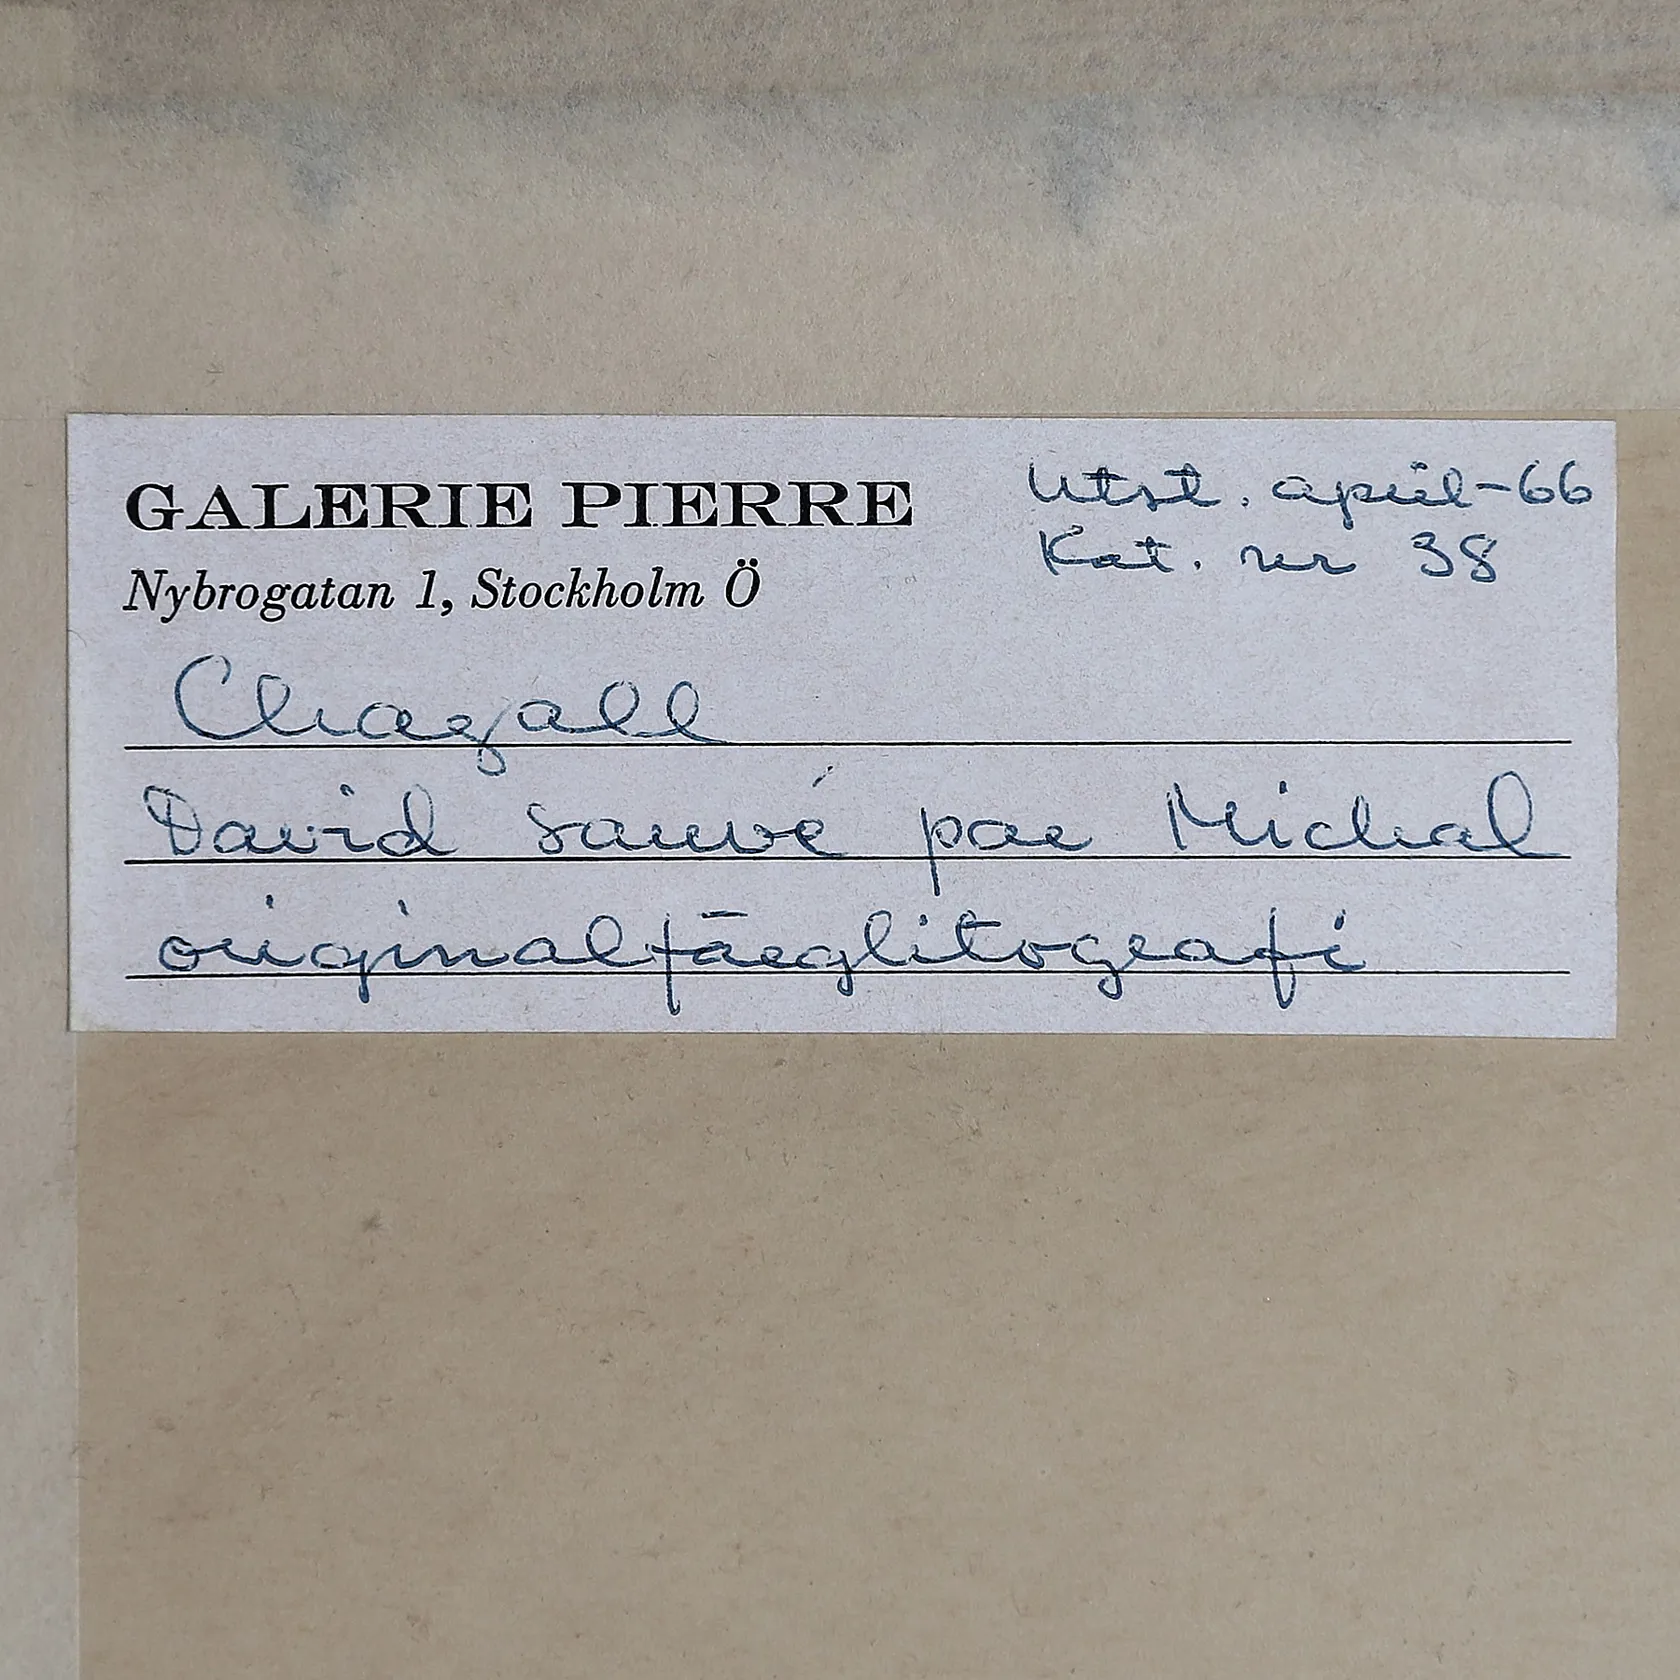 GALERIE PIERRE
Nybrogatan 1, Stockholm Ö
Utst. april-66
Kat. nr 38
Chagall
David sauvé par Michal
originalfärglitografi